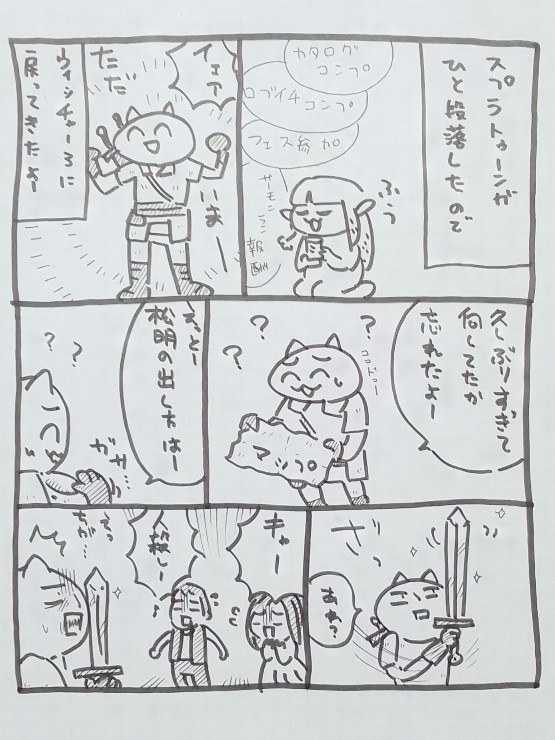 スプラトゥーンが
ひと段落したので
カタログ
コンプ
ロブイチ
コンプ
フェス参加
サーモン
ラン
報酬
ふぅ
イェア
ただ
いまー
ウィッチャー3に
戻ってきたよー
久しぶりすぎて
何してたか
忘れたよー
？
？
ココドゥー
マップ
えっとー
松明の出し方はー
？
？
ガサ…
ざっ
あれ？
キャー
人殺しー
えっ
ちが…